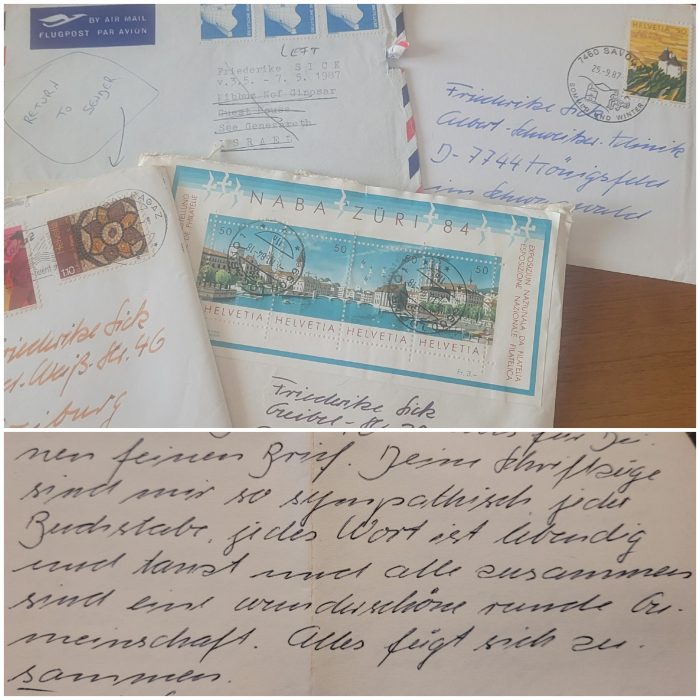 BY AIR MAIL
FLUGPOST PAR AVION
RETURN
TO SENDER
LEFT
Friederike SICK
v.3.5. - 7.5.1987
Kibbuz Nof Ginosar
Guest House
See Genezareth
ISRAEL
HELVETIA 50
7460 SAVOGNIN
25.-9.87
SOMMER UND WINTER
Friederike Sick
Albert-Schweitzer-Klinik
D-7744 Königsfeld
im Schwarzwald
RAGAZ
110
Friederike Sick
-Weiß-Str. 46
Freiburg
NABA ZÜRI 84
50 50 50 50
HELVETIA HELVETIA HELVETIA HELVETIA
EXPOSIZIUN NAZIUNALA DA FILATELIA
ESPOSIZIONE NAZIONALE FILATELICA
Fr. 3.-
Friederike Sick
Greibel-Str.
für Dei-
nen feinen Brief. Deine Schriftzüge
sind mir so sympathisch, jeder
Buchstabe, jedes Wort ist lebendig
und tanzt und alle zusammen
sind eine wunderschöne runde Ge-
meinschaft. Alles fügt sich zu-
sammen.